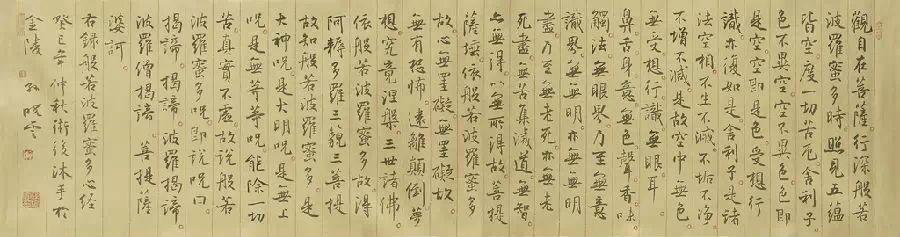 觀自在菩薩行深般若
波羅蜜多時照見五蘊
皆空度一切苦厄舍利子
色不異空空不異色色即
是空空即是色受想行
識亦復如是舍利子是諸
法空相不生不滅不垢不淨
不增不減是故空中無色
無受想行識無眼耳
鼻舌身意無色聲香味
觸法無眼界乃至無意
識界無無明亦無無明
盡乃至無老死亦無老
死盡無苦集滅道無智
亦無得以無所得故菩提
薩埵依般若波羅蜜多
故心無罣礙無罣礙故
無有恐怖遠離顛倒夢
想究竟涅槃三世諸佛
依般若波羅蜜多故得
阿耨多羅三藐三菩提
故知般若波羅蜜多是
大神呪是大明呪是無上
呪是無等等呪能除一切
苦真實不虛故說般若
波羅蜜多呪即說呪曰
揭諦揭諦波羅揭諦
波羅僧揭諦菩提薩
婆訶
右錄般若波羅蜜多心經
癸巳年仲秋術後沐手於
金陵 孙晓云